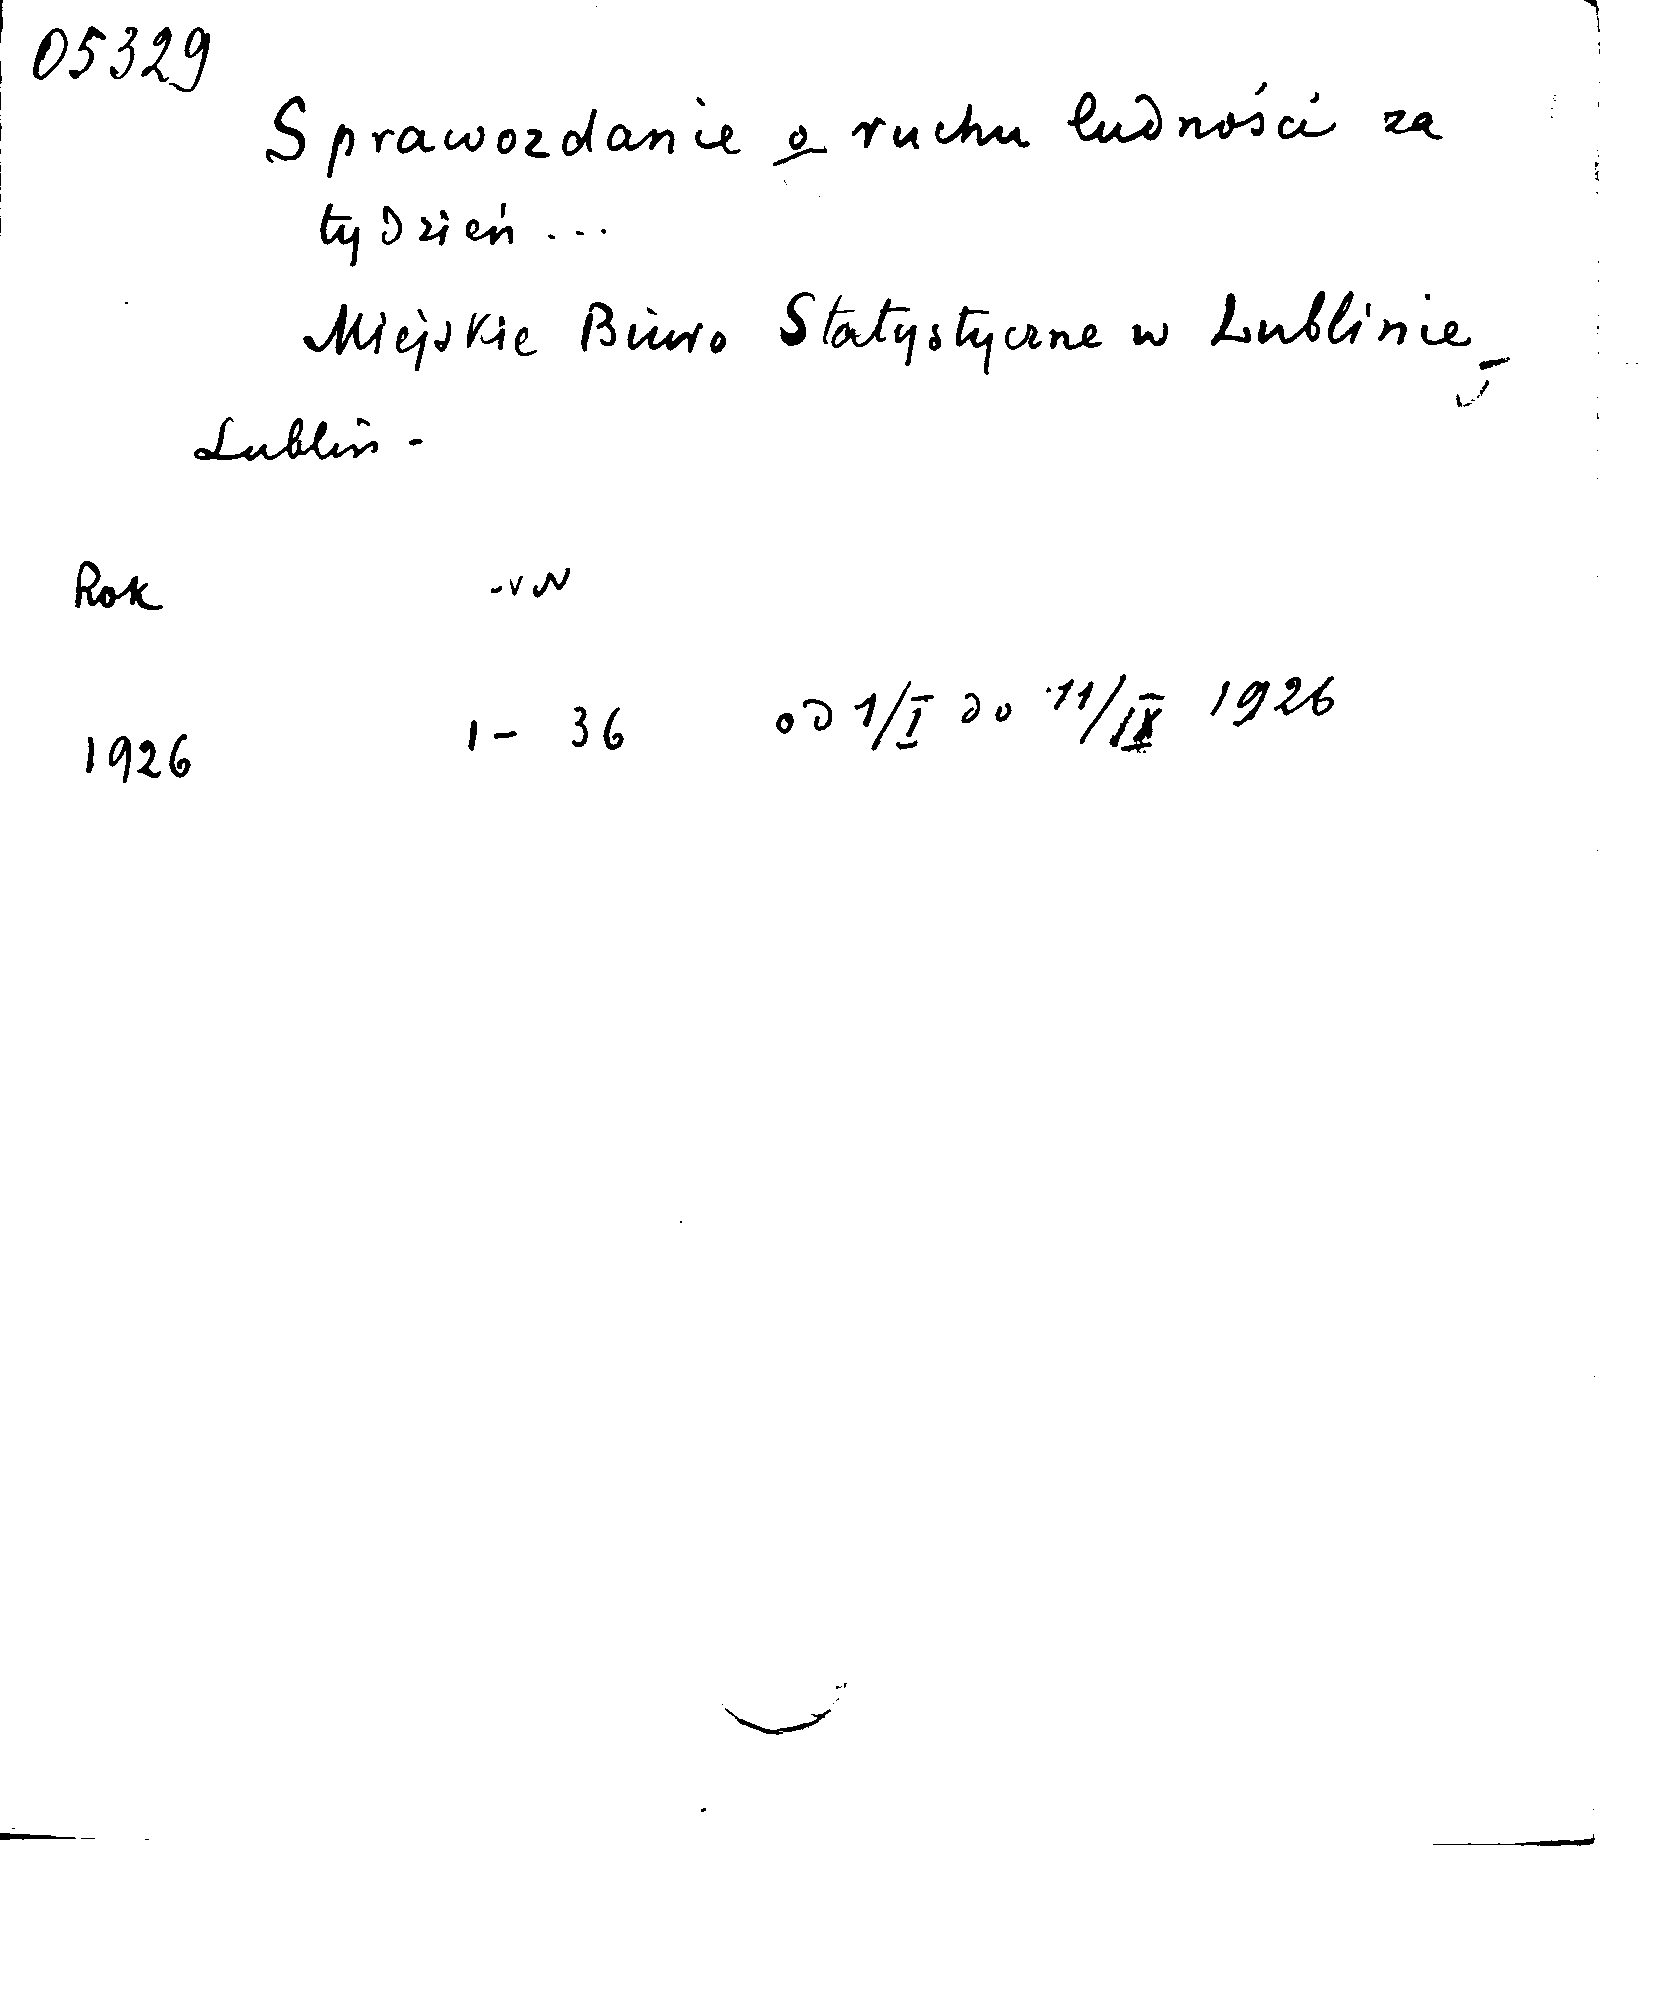 05329
Sprawozdanie o ruchu ludności za
tydzień ...
Miejskie Biuro Statystyczne w Lublinie
Lublin -
Rok
1926 1 - 36 od 1/I do 11/IX 1926